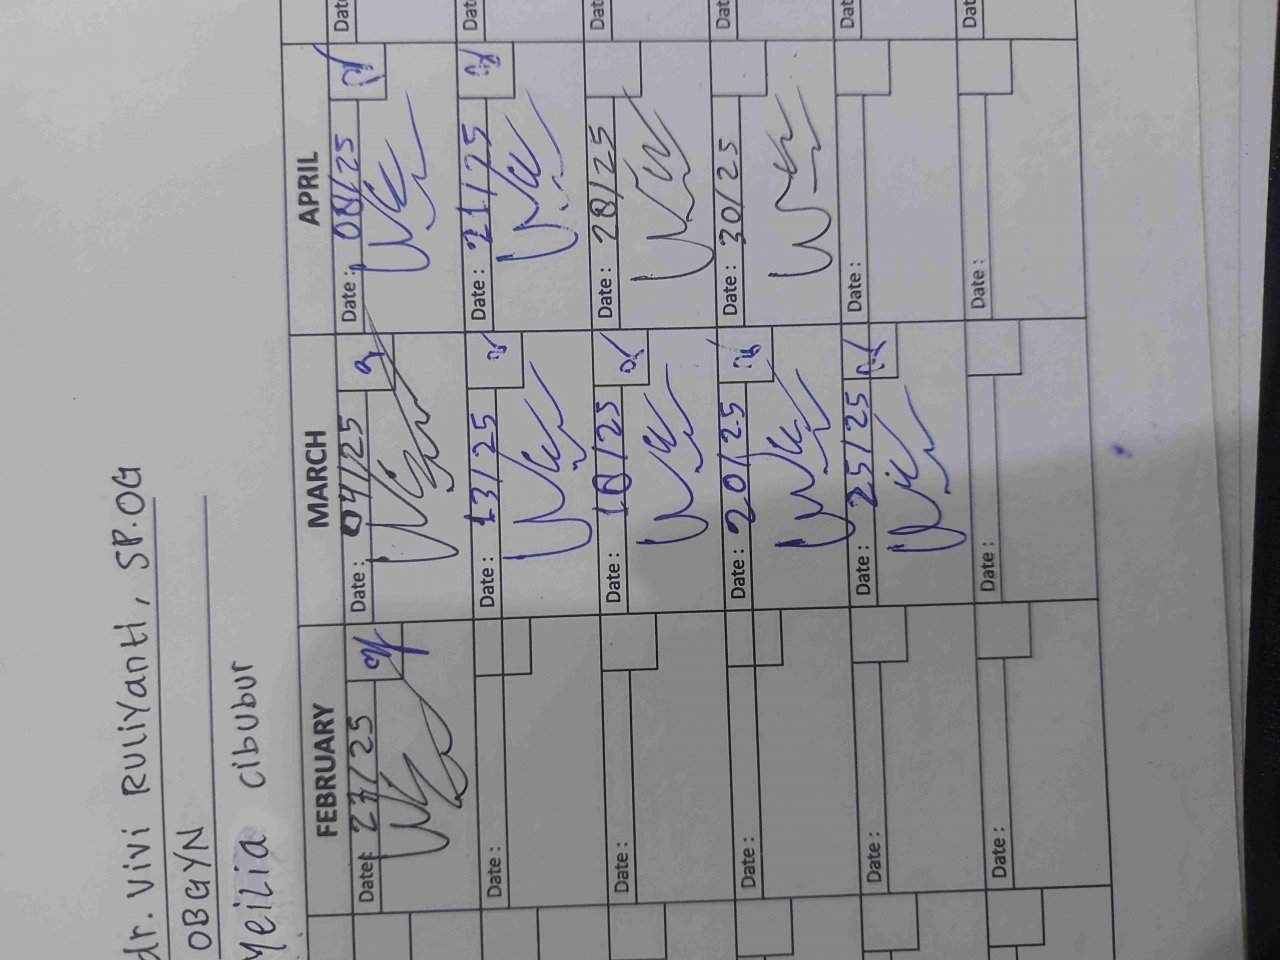 dr. Vivi RULiYanti, SP.OG
OBGYN
Meilia Cibubur
FEBRUARY
MARCH
APRIL
Date: 27/25
Date: 04/25
Date: 08/25
Date:
Date:
Date: 13/25
Date: 21/25
Date:
Date:
Date: 18/25
Date: 28/25
Date:
Date:
Date: 20/25
Date: 30/25
Date:
Date:
Date: 25/25
Date:
Date:
Date:
Date:
Date: